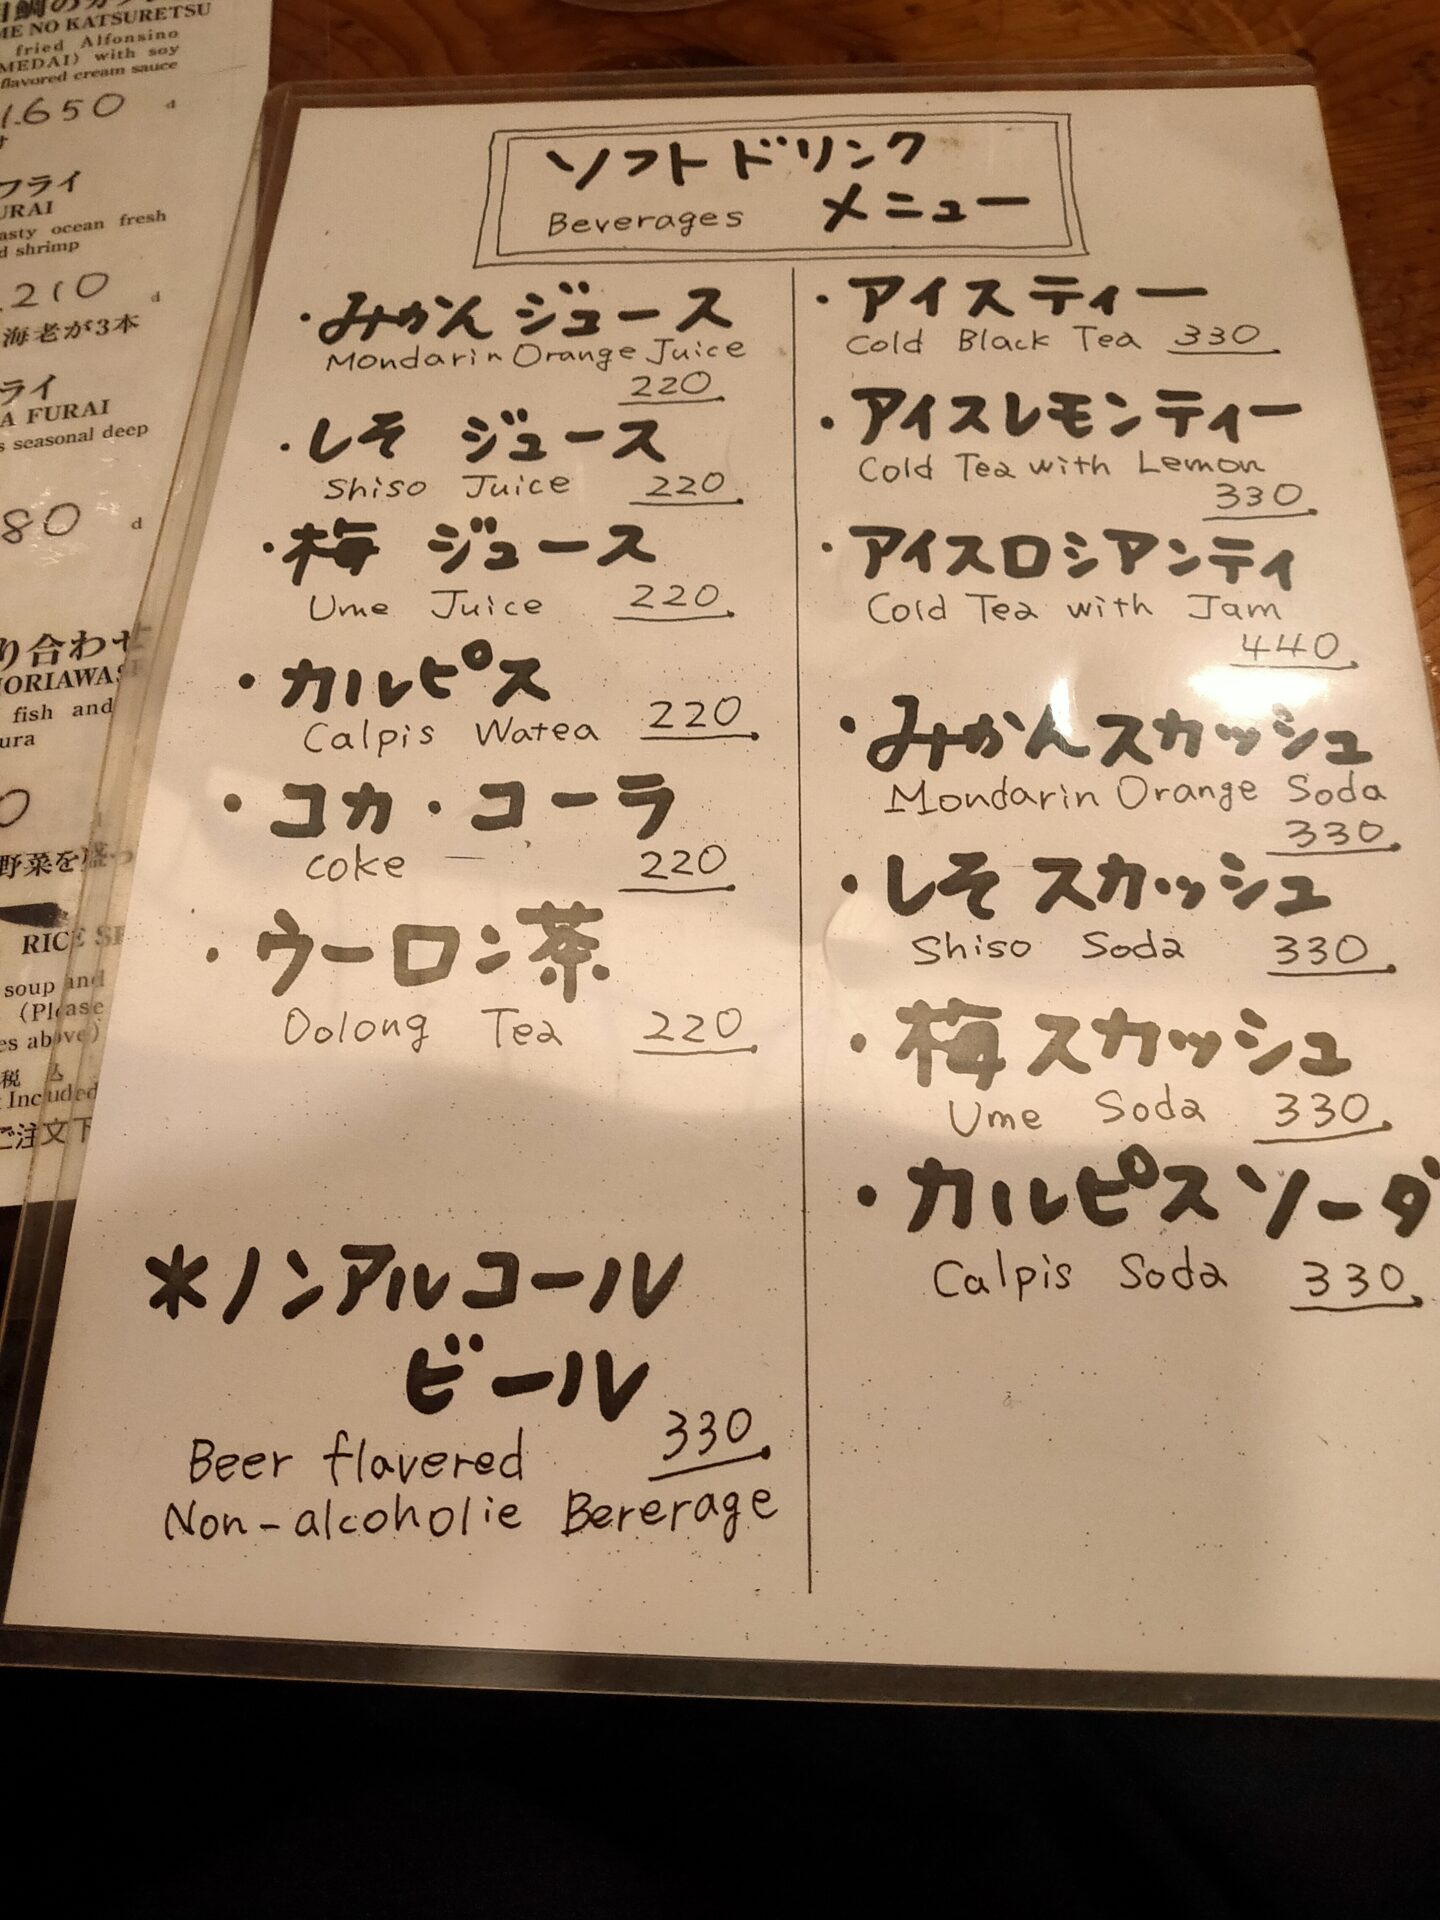 ME NO KATSURETSU
fried Alfonsino
MEDAI) with soy
flavored cream sauce
1.650
フライ
URAI
asty ocean fresh
d shrimp
210
海老が3本
ライ
A FURAI
s seasonal deep
80
り合わせ
MORIAWASE
fish and
ura
野菜を盛っ
RICE SE
soup and
(Please
es above)
税 込
Included
ご注文下
ソフトドリンク
メニュー
Beverages
・みかんジュース
Mondarin Orange Juice
220
・しそ ジュース
Shiso Juice 220
・梅 ジュース
Ume Juice 220
・カルピス
Calpis Watea 220
・コカ・コーラ
coke 220
・ウーロン茶
Oolong Tea 220
*ノンアルコール
ビール
330
Beer flavered
Non-alcoholie Bererage
・アイスティー
Cold Black Tea 330
・アイスレモンティー
Cold Tea with Lemon
330
・アイスロシアンティ
Cold Tea with Jam
440
・みかんスカッシュ
Mondarin Orange Soda
330
・しそスカッシュ
Shiso Soda 330
・梅スカッシュ
Ume Soda 330
・カルピスソーダ
Calpis Soda 330